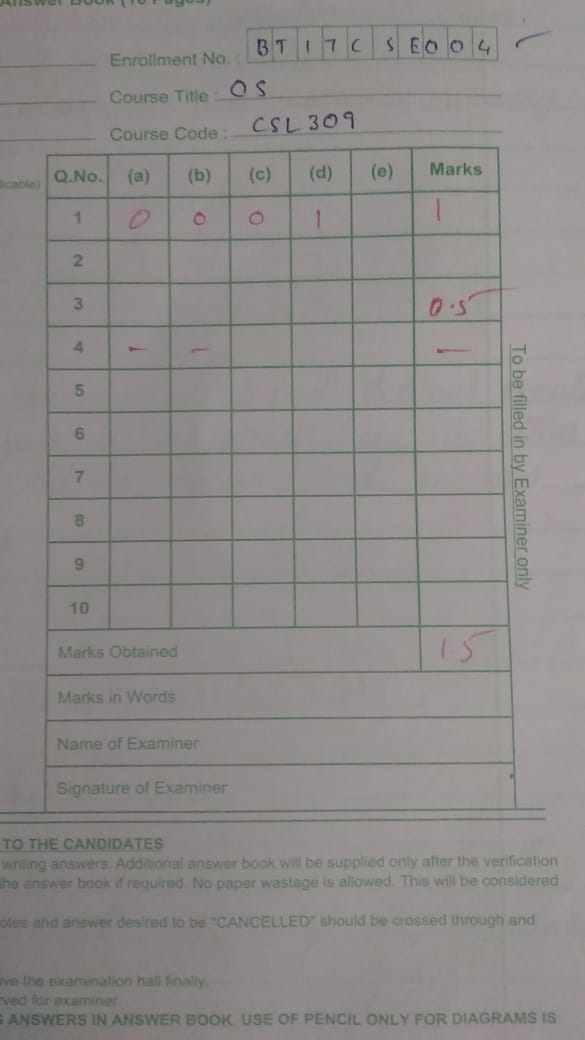 Answer Book (16 Pages)
Enrollment No. : BT17CSE004
Course Title : OS
Course Code : CSL309
Q.No. (a) (b) (c) (d) (e) Marks
licable)
1 0 0 0 1 1
2
3 0.5
4 - - -
5
6
7
8
9
10
To be filled in by Examiner only
Marks Obtained 1.5
Marks in Words
Name of Examiner
Signature of Examiner
TO THE CANDIDATES
writing answers. Additional answer book will be supplied only after the verification
he answer book if required. No paper wastage is allowed. This will be considered
otes and answer desired to be "CANCELLED" should be crossed through and
ve the examination hall finally.
rved for examiner.
ANSWERS IN ANSWER BOOK. USE OF PENCIL ONLY FOR DIAGRAMS IS